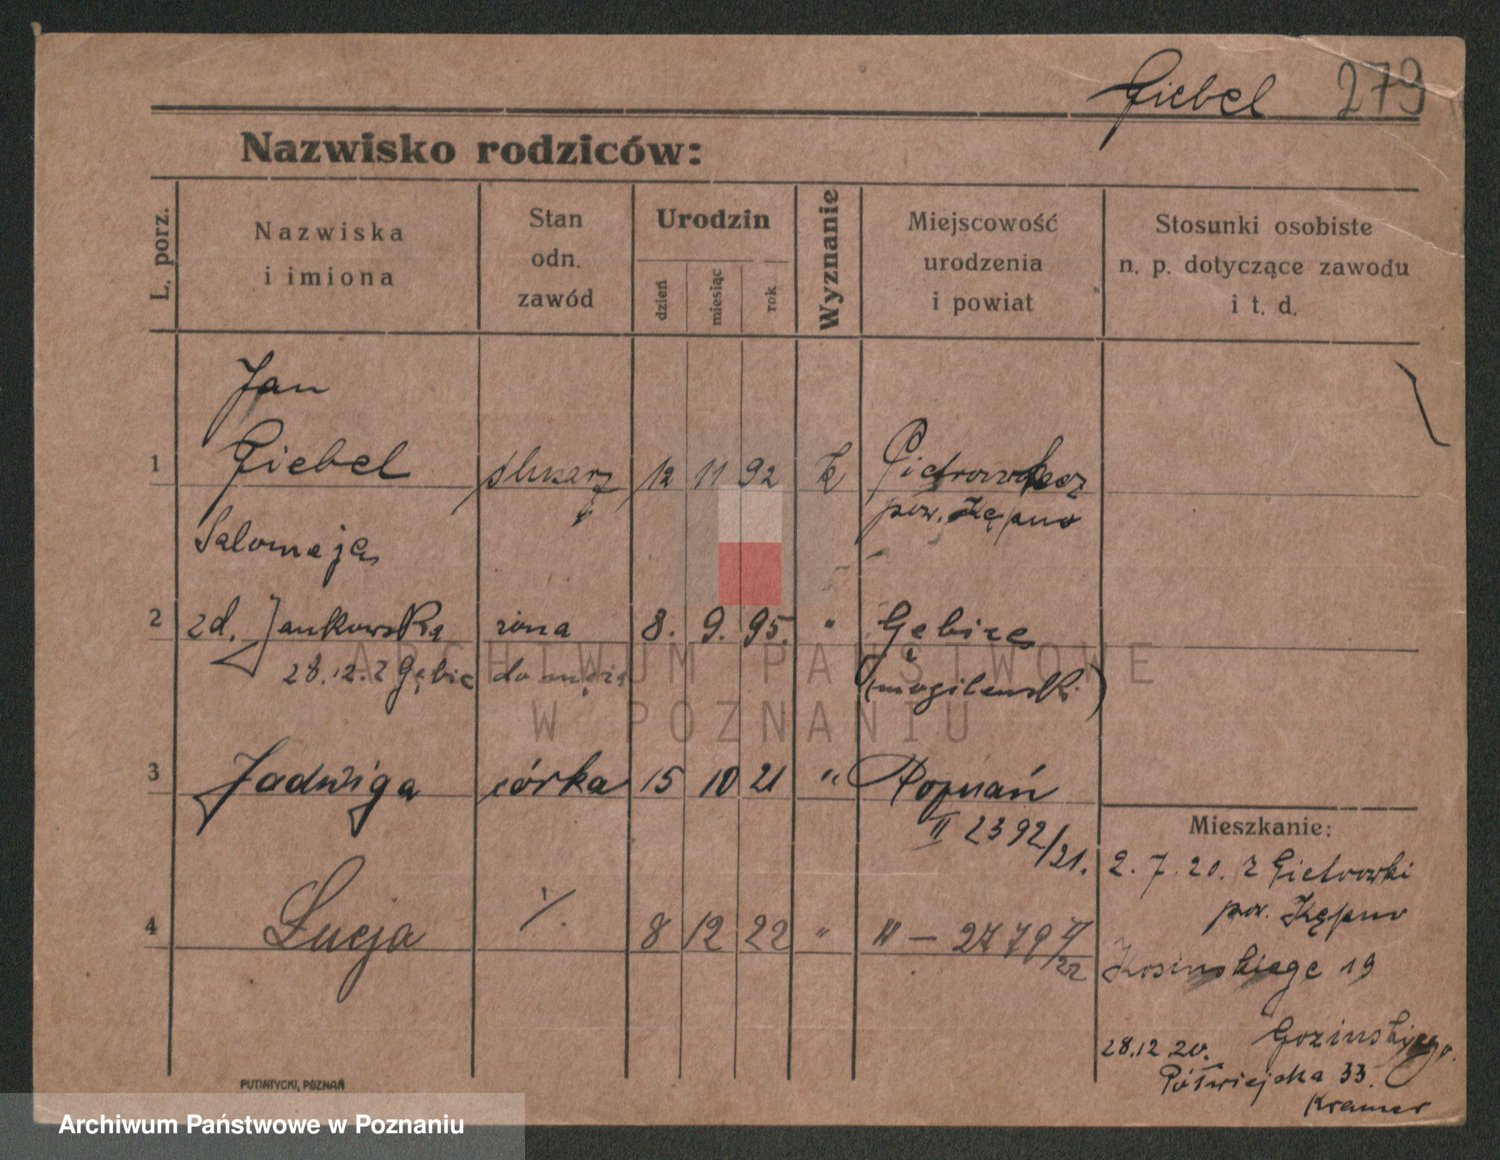 Giebel 279
Nazwisko rodziców:
L. porz.
Nazwiska
i imiona
Stan
odn.
zawód
Urodzin
dzień
miesiąc
rok
Wyznanie
Miejscowość
urodzenia
i powiat
Stosunki osobiste
n. p. dotyczące zawodu
i t. d.
Jan
1 Giebel ślusarz 12 11 92 k
pow. Kępno
Salomeja
2 zd. Jankowska żona 8. 9. 95. " Gębice
28.12. z Gębic do męża (mogilnowski)
3 Jadwiga córka 15 10 21 " Poznań
II 2392/21.
Mieszkanie:
2. 7. 20. z
pow. Kępno
4 Łucja 8 12 22 "
Kosinskiego 19
28.12 20.
Półwiejska 33.
Kramer
PUTIATYCKI, POZNAŃ
ARCHIWUM PAŃSTWOWE
W POZNANIU
Archiwum Państwowe w Poznaniu